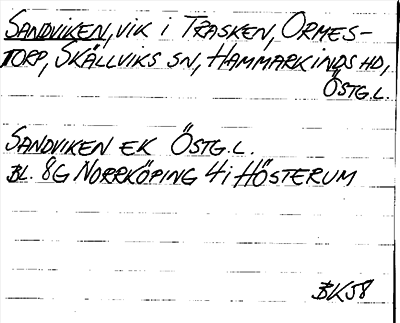 SANDVIKEN, VIK I TRASKEN, ORMES-
TORP, SKÄLLVIKS SN, HAMMARKINDS HD,
ÖSTG.L.
SANDVIKEN EK ÖSTG.L.
BL. 8G NORRKÖPING 4i HÖSTERUM
BK58